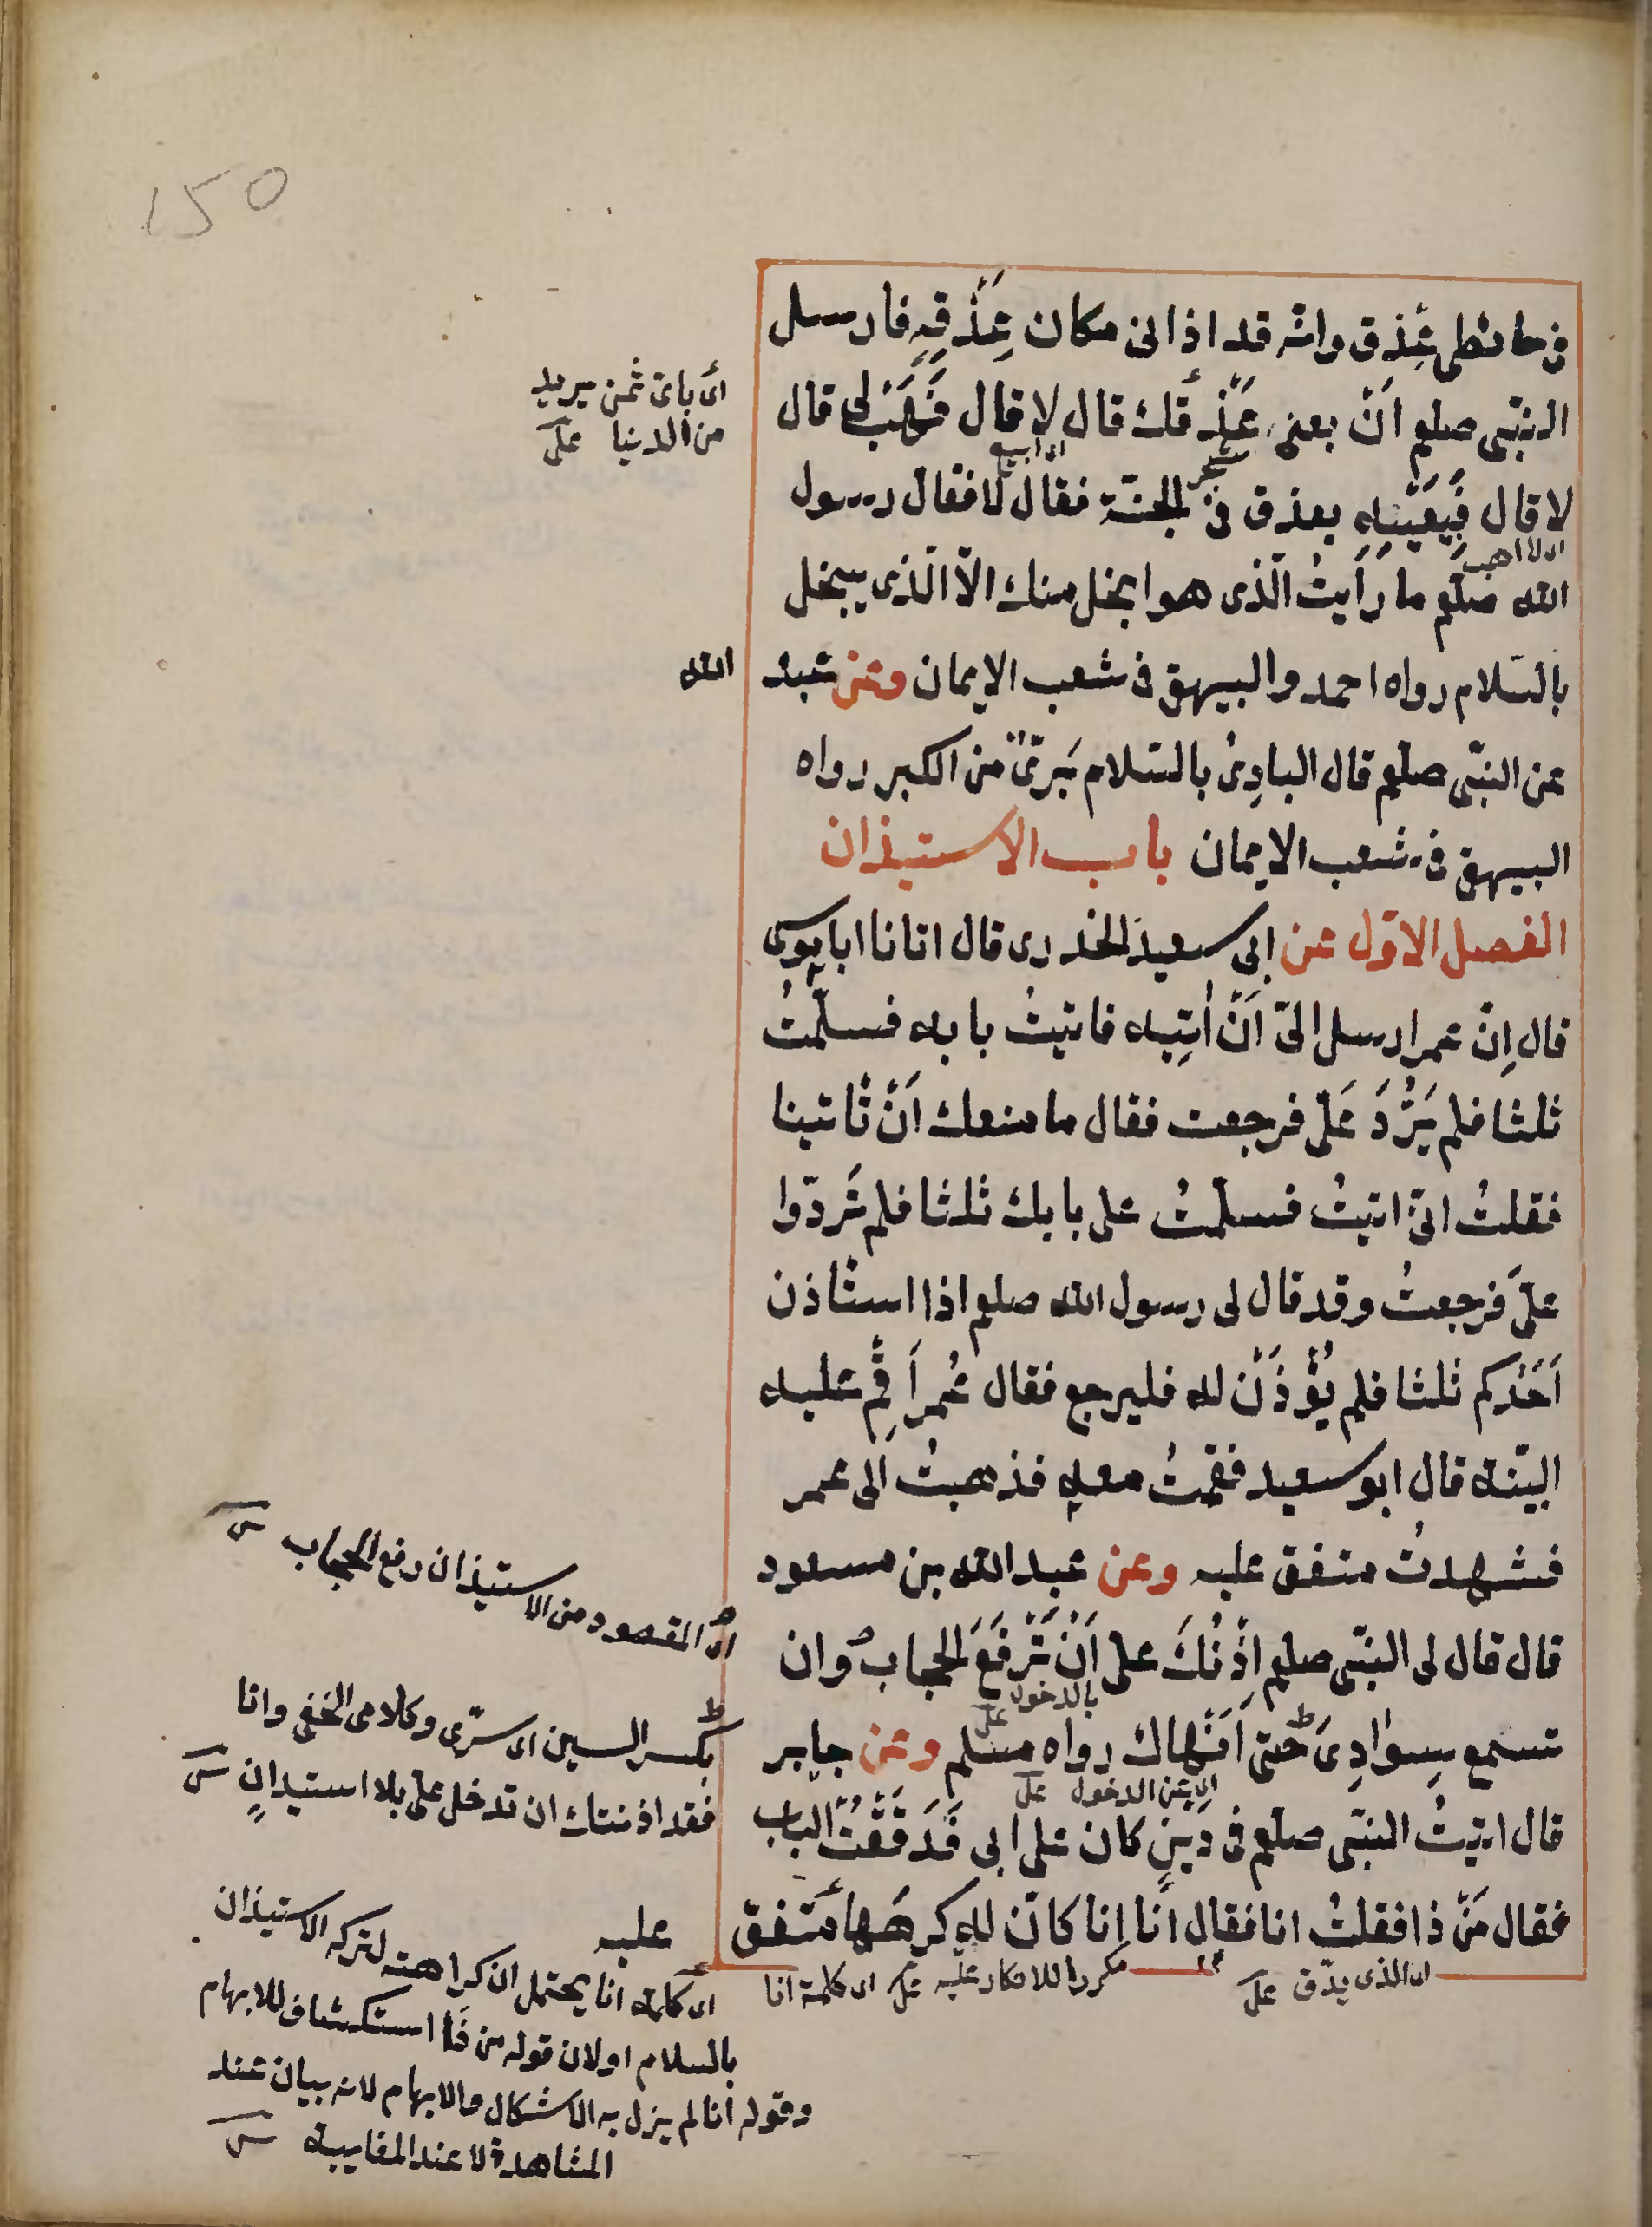 150
فى حائطى عَذق وانه قد اذانى مكان عَذْقِهِ فارسل
النبّى صلعم اَنْ بعنى عَذْقك قال لا قال فَهَبْ لى قال
لا قال فَبِعْنِيهِ بعذق فى الجنّة فقال لا فقال رسول
الله صلعم ما رَاَيتُ الّذى هو ابخل منك الاّ الّذى يبخل
بالسّلام رواه احمد والبيهقى فى شعب الايمان وعن عبد الله
عن النبّى صلعم قال البادِئُ بالسّلام بَرِىٌٔ من الكبر رواه
البيهقى فى شعب الايمان باب الاستيذان
الفصل الاوّل عن ابى سعيد الخدرى قال اتانا ابا موسى
قال اِنّ عمر ارسل الىّ اَنْ اٰتِيه فاتيتُ بابه فسلّمتُ
ثلثا فلم يَرُدَّ عَلىّ فرجعت فقال ما منعك اَنْ تأتينا
فقلتُ انّى اتيتُ فسلّمتُ على بابك ثلثا فلم تَردّوا
علىّ فرجعتُ وقد قال لى رسول الله صلعم اذا استأذن
اَحَدُكم ثلثا فلم يُؤْذَنْ له فليرجع فقال عُمر اَقِمْ عليه
البيّنة قال ابو سعيد فقمتُ معه فذهبتُ الى عمر
فشهدتُ متفق عليه وعن عبد الله بن مسعود
قال قال لى النبّى صلعم اِذْنُكَ علىّ اَنْ تَرْفَعَ الحجاب وان
تسمع سِوادِىَ حتى اَنْهاك رواه مسلم وعن جابر
قال اتيتُ النبّى صلعم فى دَينٍ كان على ابى فَدَقَقْتُ الباب
فقال مَنْ ذا فقلتُ انا فقال اَنا انا كانّه كرهها متفق
عليه
اى باىّ ثمن يريد
من الدنيا علىّ
اى لا ابيع
اى لا اهب
اى المقصود من الاستيذان رفع الحجاب
بالدخول علىّ
بكسر السين اى سرّى وكلامى الخفى وانا
فقد اذنتك ان تدخل علىّ بلا استيذانٍ
اى عن الدخول علىّ
اى الذى يدّق علىّ
مكررا للانكار عليه
اى كلمة انا
اى كلمة انا يحتمل ان كراهته لتركه الاستيذان
بالسلام او لان قوله من ذا استكشاف للابهام
وقوله انا لم يزل به الاشكال والابهام لانه بيان عند
المشاهدة لا عند المغايبة